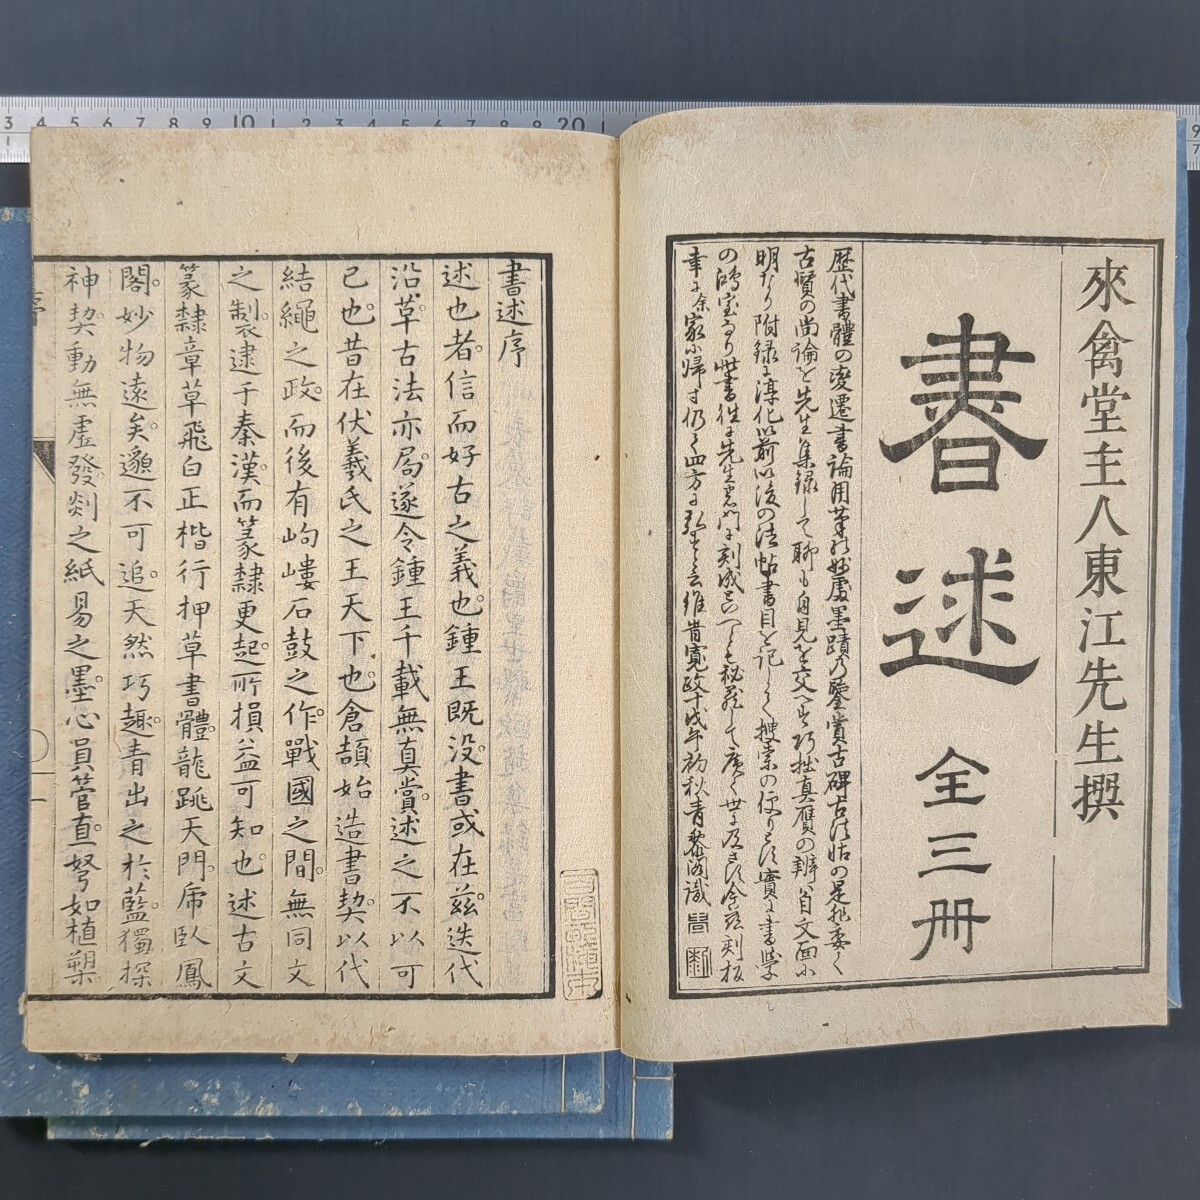 來禽堂主人東江先生撰
書述 全三冊
歴代書體の変遷書論用筆の妙處墨蹟乃鑒賞古碑古法帖の是非委く
古賢の尚論を先生集録して聊も自見を交へず巧拙真贋の辨八自文面に
明なり附録に淳化以前以後の法帖書目を記しく捜索の便りとす實に書学
の鴻宝なり
幸に余家に帰す仍て四方に弘むと云維昔寛政十戊午初秋青藜閣識
書述序
述也者。信而好古之義也。鍾王既没。書或在茲。迭代
沿草。古法亦局。遂令鍾王千載無真賞。述之不以可
已也。昔在伏羲氏之王天下也。倉頡始造書契。以代
結繩之政。而後有岣嶁石鼓之作。戰國之間。無同文
之製。逮于秦漢。而篆隸更起。所損益可知也。述古文
篆隸章草飛白正楷行押草書體。龍跳天門。虎臥鳳
閣。妙物遠矣。邈不可追。天然巧趣。青出之於藍。獨探
神契。動無虚發。剡之紙易之墨。心員管直。弩如植槊。
3 4 5 6 7 8 9 10 1 2 3 4 5 6 7 8 9 20 1